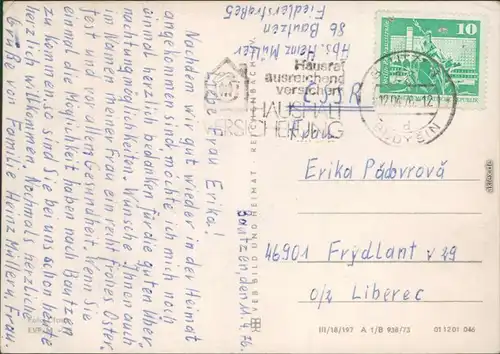 Liebe Frau Erika!
Nachdem wir gut wieder in der Heimat
angekommen sind möchte ich mich noch
einmal herzlich bedanken für die guten Über-
nachtungsmöglichkeiten. Wünsche Ihnen auch
im Namen meiner Frau ein recht frohes Oster-
fest und vor allem Gesundheit. Wenn Sie
einmal die Möglichkeit haben nach Bautzen
zu kommen so sind Sie bei uns schon heute
herzlich willkommen. Nochmals herzliche
Grüße von Familie Heinz Müller u. Frau.
Bautzen, den 11.4.76.
Abs. Heinz Müller
86 Bautzen
Fiedlerstraße 5
Hausrat
ausreichend
versichern
HAUSHALT
VERSICHERUNG
ČSSR
10
BAUTZEN
BUDYŠIN
VEB BILD UND HEIMAT · REICHENBACH
Erika Pádovrová
46901 Frýdlant v 29
o/z Liberec
III/18/197 A 1/B 938/73 01 12 01 046